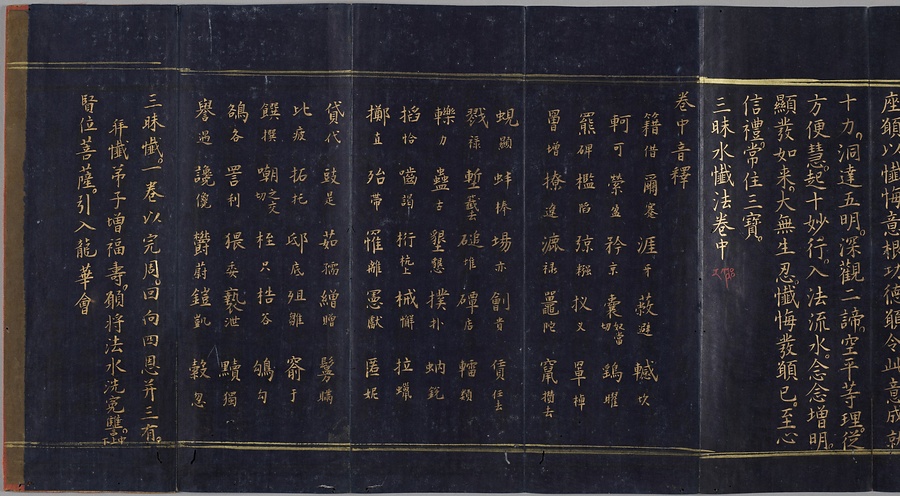 座願以懺悔意根功德願令此意成就
十力。洞達五明。深觀二諦。空平等理。從
方便慧。起十妙行。入法流水。念念增明。
顯發如來。大無生忍。懺悔發願已。至心
信禮。常住三寶。
三昧水懺法卷中
卷中音釋
籍借 爾蹇 涯牙 蔌避 轗坎
軻可 縈盈 矜京 囊奴當切 鵄曜
羆碑 檻陷 弶糨 扠叉 罩棹
罾增 撩遼 漉祿 鼉陀 竄攛去
蜆顯 蚌棒 場亦 劊貴 賃任去
戮陸 塹籤去 磓堆 磹店 轜顋
轢力 蠱古 墾懇 撲扑 蚋銳
搯恰 嚙謁 桁杭上 械懈 拉蠟
擲直 殆帶 罹離 憲獻 匿妮
貸代 豉是 茹孺 繒贈 鬘瞞
比疲 拓托 邸底 俎雛 窬于
饌撰 嘲之交切 桎只 梏谷 鴝勾
鴿各 詈利 猥委 褻泄 黷獨
譽過 讒儳 鬱蔚 鎧凱 縠忽
三昧懺。一卷以完周。回向四恩并三有。
拜懺弟子增福壽。願將法水洗冤讐。
賢位菩薩。引入龍華會